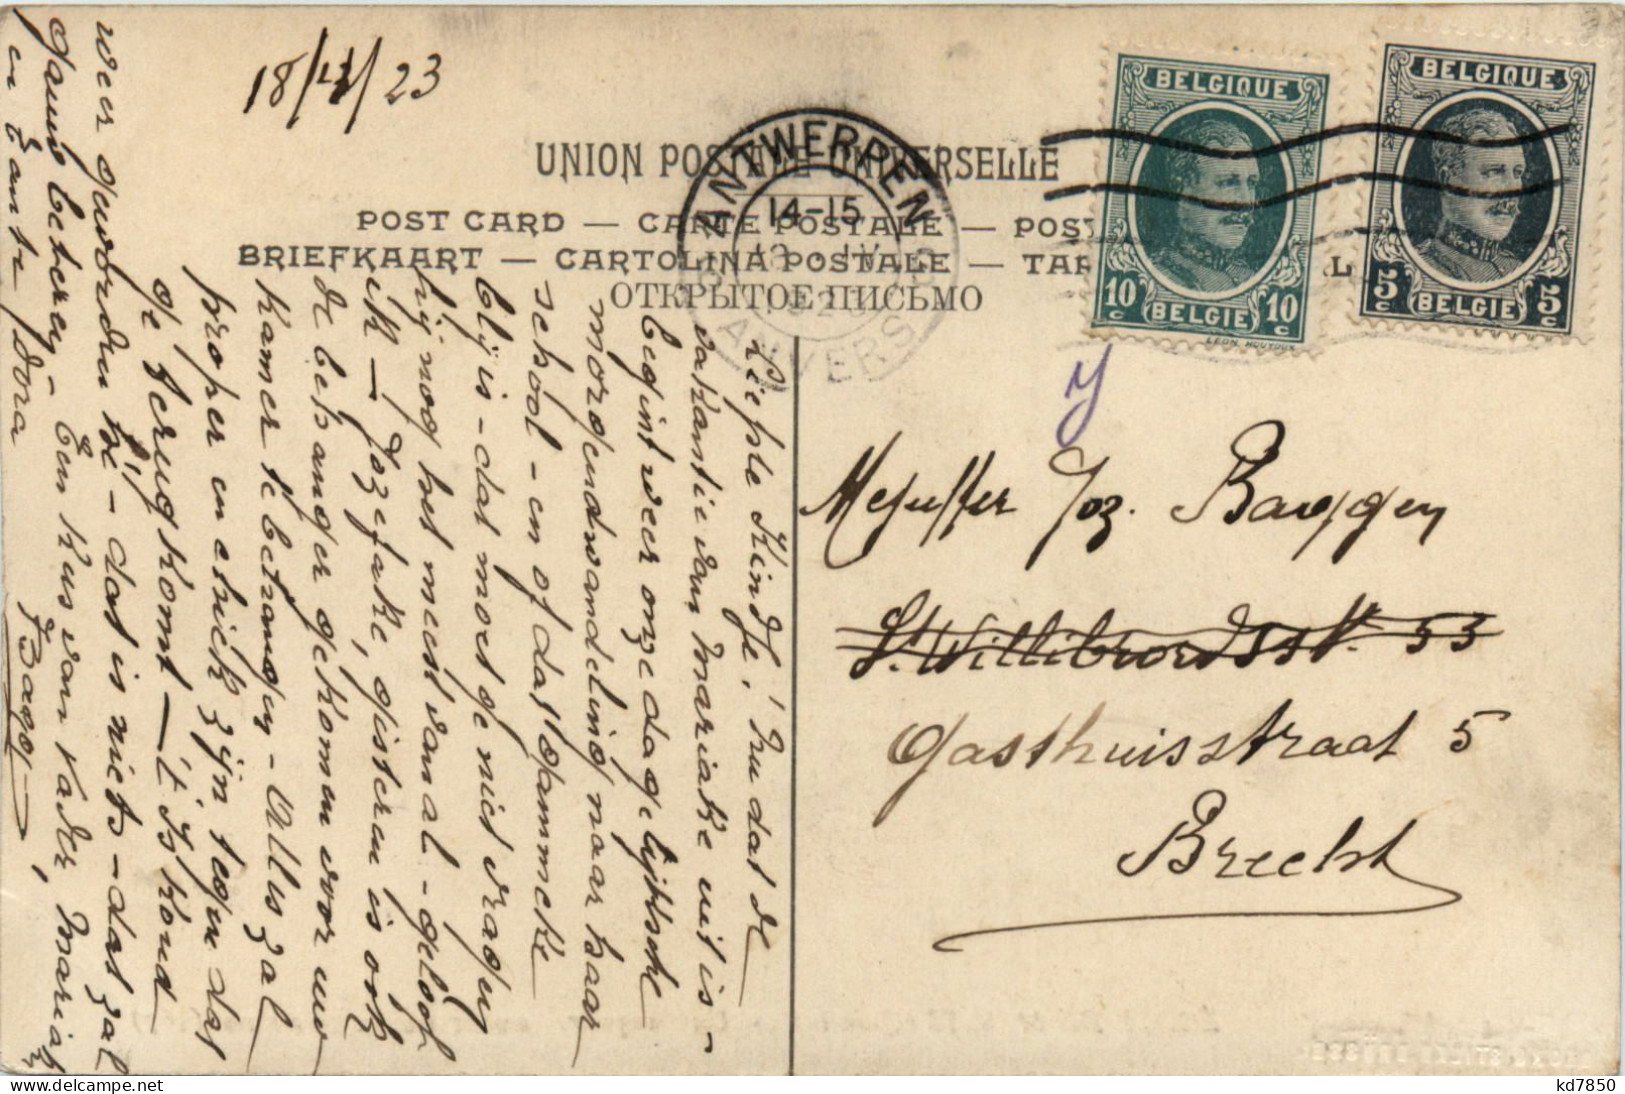 18/4/23
UNION POSTALE UNIVERSELLE
POST CARD — CARTE POSTALE — POST
BRIEFKAART — CARTOLINA POSTALE — TAR L
ОТКРЫТОЕ ПИСЬМО
ANTWERPEN
14-15
ANVERS
BELGIQUE
10 c
BELGIE
10 c
LEON HOUYOUX
BELGIQUE
5 c
BELGIE
5 c
Liefste Kindje! Nu dat de
vakantie van Mariake uit is -
begint weer onze dagelijksche
morgendwandeling naar haar
school - en of dat Jammeke
blij is - dat moet ge niet vragen
hij nog het meest van al - geloof
ik — Jozefake, gisteren is ook
de behanger gekomen voor uw
kamer te behangen - Alles zal
proper en chick zijn tegen dat
ge terug komt — 't Is koud
weer geworden hé - dat is niets - dat zal
gauw beteren - Een kus van Vader, Maria
en Tante Dora
Mejuffer Joz. Bauggen
St. Willibrordsstr. 53
Gasthuisstraat 5
Brecht
kd7850